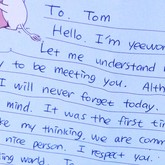 To. Tom
Hello. I'm yeewon
Let me understand
y to be meeting you. Alth
I will never forget today.
mind. It was the first ti
ke my thinking, we are comm
nice person. I respect you.
ing world. I